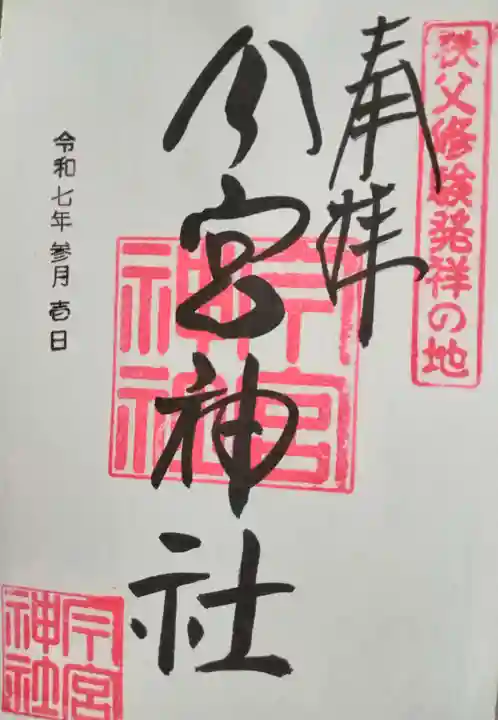 秩父修験発祥の地
奉拝
今宮神社
今宮
神社
令和七年 参月 壱日
今宮
神社